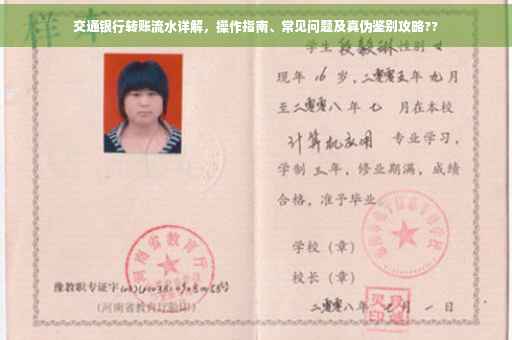 交通银行转账流水详解，操作指南、常见问题及真伪鉴别攻略??
样本
学生 段毅琳 性别 女
现年 16 岁，二零零五年 九月
至二零零八年 七 月在本校
计算机应用 专业学习，
学制 三 年，修业期满，成绩
合格，准予毕业
学校（章）
校长（章）
二零零八年 七 月 一 日
河南省教育厅
豫教职专证字
（河南省教育厅验印）